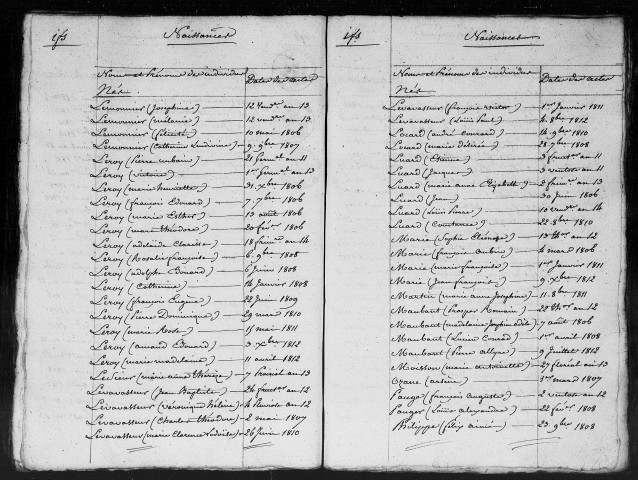 ifs
Naissances
Noms et Prénoms des individus
Dates des actes
Nés
Lemonnier (Joséphine) 12 Vend.re an 13
Lemonnier (mélanie) 12 vend.re an 13
Lemonnier (félicité) 10 mai 1806
Lemonnier (Catherine Ludivine) 9. 9bre 1807
Leroy (Pierre urbain) 21 Germ.al an 11
Leroy (victoire) 1er Germ.al an 13
Leroy (marie henriette) 31. Xbre 1806
Leroy (françois Edouard) 7. 7bre 1806
Leroy (marie Esther) 13 août 1806
Leroy (marie théodore) 20 fév.er 1806
Leroy (adelaide Clarisse) 18 frim.re an 14
Leroy (Rosalie françoise) 6. 9bre 1808
Leroy (adolphe Edouard) 6 Juin 1808
Leroy (Catherine) 14 Janvier 1808
Leroy (françois Eugène) 22 Juin 1809
Leroy (Pierre Dominique) 29 mai 1810
Leroy (marie Rose) 15 mai 1811
Leroy (amand Edouard) 3. Xbre 1812
Leroy (marie madelaine) 11 avril 1812
(marie anne thérèse) 7 Prairial an 13
Levavasseur (Jean Baptiste) 24 fruct.or an 12
Levavasseur (Véronique hélène) 4 Pluviose an 12
Levavasseur (Charles théodore) 2 mai 1807
Levavasseur (marie Clarence Ludoise) 26 Juin 1810
ifs
Naissances
Noms et Prénoms des individus
Dates des actes
Nés
Levavasseur (françois victor) 1er Janvier 1811
Levavasseur (Louis Paul) 4. 8bre 1812
Locard (andré conrard) 14. 9bre 1810
Luard (marie désirée) 28. 7bre 1808
Luard (Etienne) 3 fruct.or an 11
Luard (Jacques) 3 ventose an 11
Luard (marie anne Elizabeth) 2 frim.re an 13
Luard (Jean) 30 Juin 1806
Luard (Louis Pierre) 10 vend.re an 14
Luard (Constance) 22. 8bre 1810
Marie (Sophie Eléonore) an 12
Marie (françois aubin) 4 mars 1806
Marie (marie françoise) 1er Janvier 1811
Marie (Jean françois) 9. Xbre 1812
Martin (marie anne Joséphine) 11. 8bre 1811
Maubant (françois Romain) an 12
Maubant (madelaine Joséphine odile) 7 août 1806
Maubant (Lucien Conrad) 1er avril 1808
Maubant (Pierre allyre) 9 Juillet 1812
Moisson (marie antoinette) 27 floréal an 13
(arsène) 1er mars 1807
Pauger (françois auguste) 2 ventose an 12
Pauger (Louis alexandre) 22 fév.er 1808
Philippe (félix aimé) 23. 9bre 1808